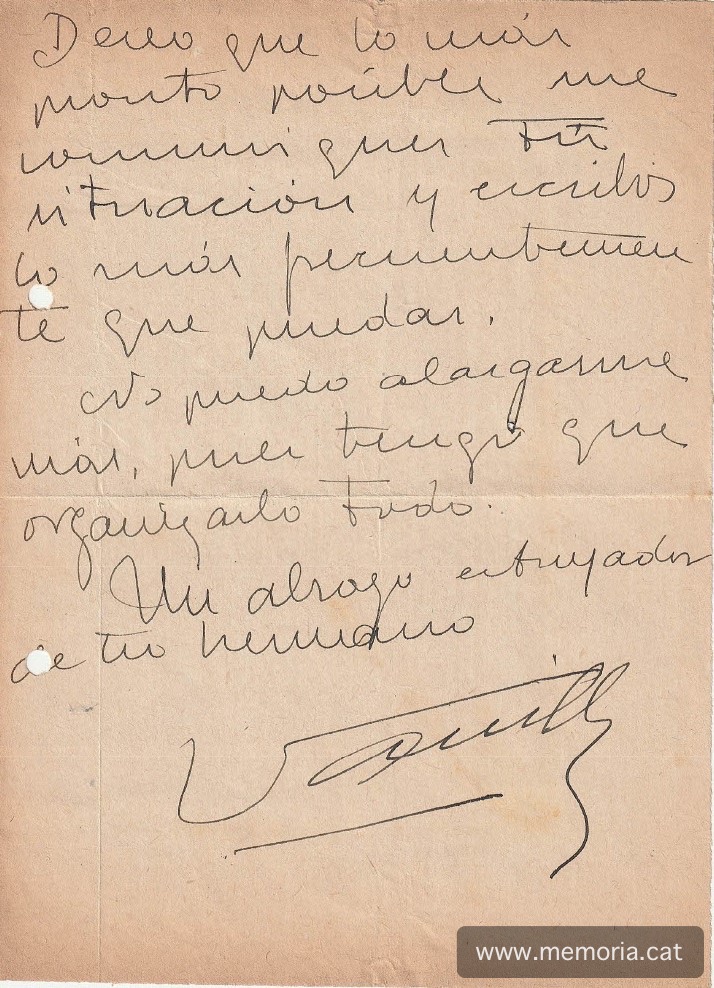 Deseo que lo más
pronto posible me
comuniques tú
situación y escribas
lo más frecuentemen
te que puedas.
No puedo alargarme
más, pues tengo que
organizarlo todo.
Un abrazo estrujador
de tu hermano
www.memoria.cat